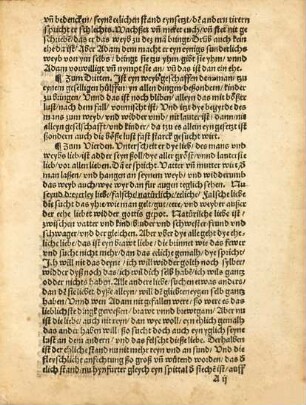 vñ bedencken / seynē eelichen stand eynsetzt / dē andern tieren
spricht er schlechts. Wachset vñ meret euch / vñ stet nit ge
schribē / das er das weyb zu dez man bring / Drūb auch keyn
ehe da ist / Aber Adam dem macht er eyn eynigs sunderlichs
weyb von jm selbs / bringt sie zu yhm gibt sie yhm / vnnd
Adam verwilligt vñ nympt sie an / vñ das ist dan ein ehe.
¶ Zum Dritten. Ist eyn weyb geschaffen dem man / tzu
eynem geselligen hülffen yn allen dingen / besundern / kinder
zu bringen / Vnnd das ist noch bliben / alleyn das mit bößer
lust / nach dem fall vormischt ist / Vnd itzt dye begyrde des
mans vnd des weybs widder vnd / nit lauter ist / dann nit
alleyn geselschafft / vnd kinder / da tzu es allein eyngesetzt ist
sondern auch die böße lust sucht fast starck gesucht wirt.
¶ Zum Vierden. Vnterscheyt er dye lieb / des mans vnd
weybs lieb ist adder seyn soll / dye aller gröst / vnnd lauterste
lieb / vor allen lieben. Da er spricht. Vatter vñ mutter wirt d'
man lassen / vnd hangen an seynem weyb / vnd widderumb
das weyb auch / wye wyr dan für augen teglich sehen. Nu
seynd dreyerley lieb / falsche / natürliche / eliche / Falsche lieb
die sucht das yhre / wie man gelt / gut / eere / vnd weyber ausser
der ehe liebt widdder gottis gepot. Natürliche liebe ist /
zwischen vatter vnd kind / bruder vnd schwester / frund vnd
schwager vnd der gleychen. Aber vber dye alle geht dye eh
liche liebe / das ist eyn brawt liebe / die brinnet wie das fewer
vnd sucht nit mehr / dan das eelich gemalh / dye spricht /
Ich will nit das deyne / ich will widder golth noch silber
widder dyß noch das / ich will dich selb habē / ich wils gantz
odder nit haben. Alle ander liebe suchen etwas anders /
dan dē sie liebet / dyße alleyn / will dē gliebten eygen selb gantz
haben / Vnnd wen Adam nit gefallen were / ßo were es das
lieblichste dingk geweßen / brawt vnnd brewtgam / Aber nu
ist die liebe / auch nit reyn / dan wye woll / eyn ehlich gemalh
das ander haben will / ßo sucht doch auch eyn yglich seyne
lust an dem andern / vnd das felschet diese liebe. Derhalben
ist der ehliche stand nu nit mehr reyn vnd an sund / Vnd die
fleyschlich anfechtung ßo groß vñ wütend worden / das der
ehlich stand nu hynfurter gleych eyn spittal d' siechē ist / auff
A ij